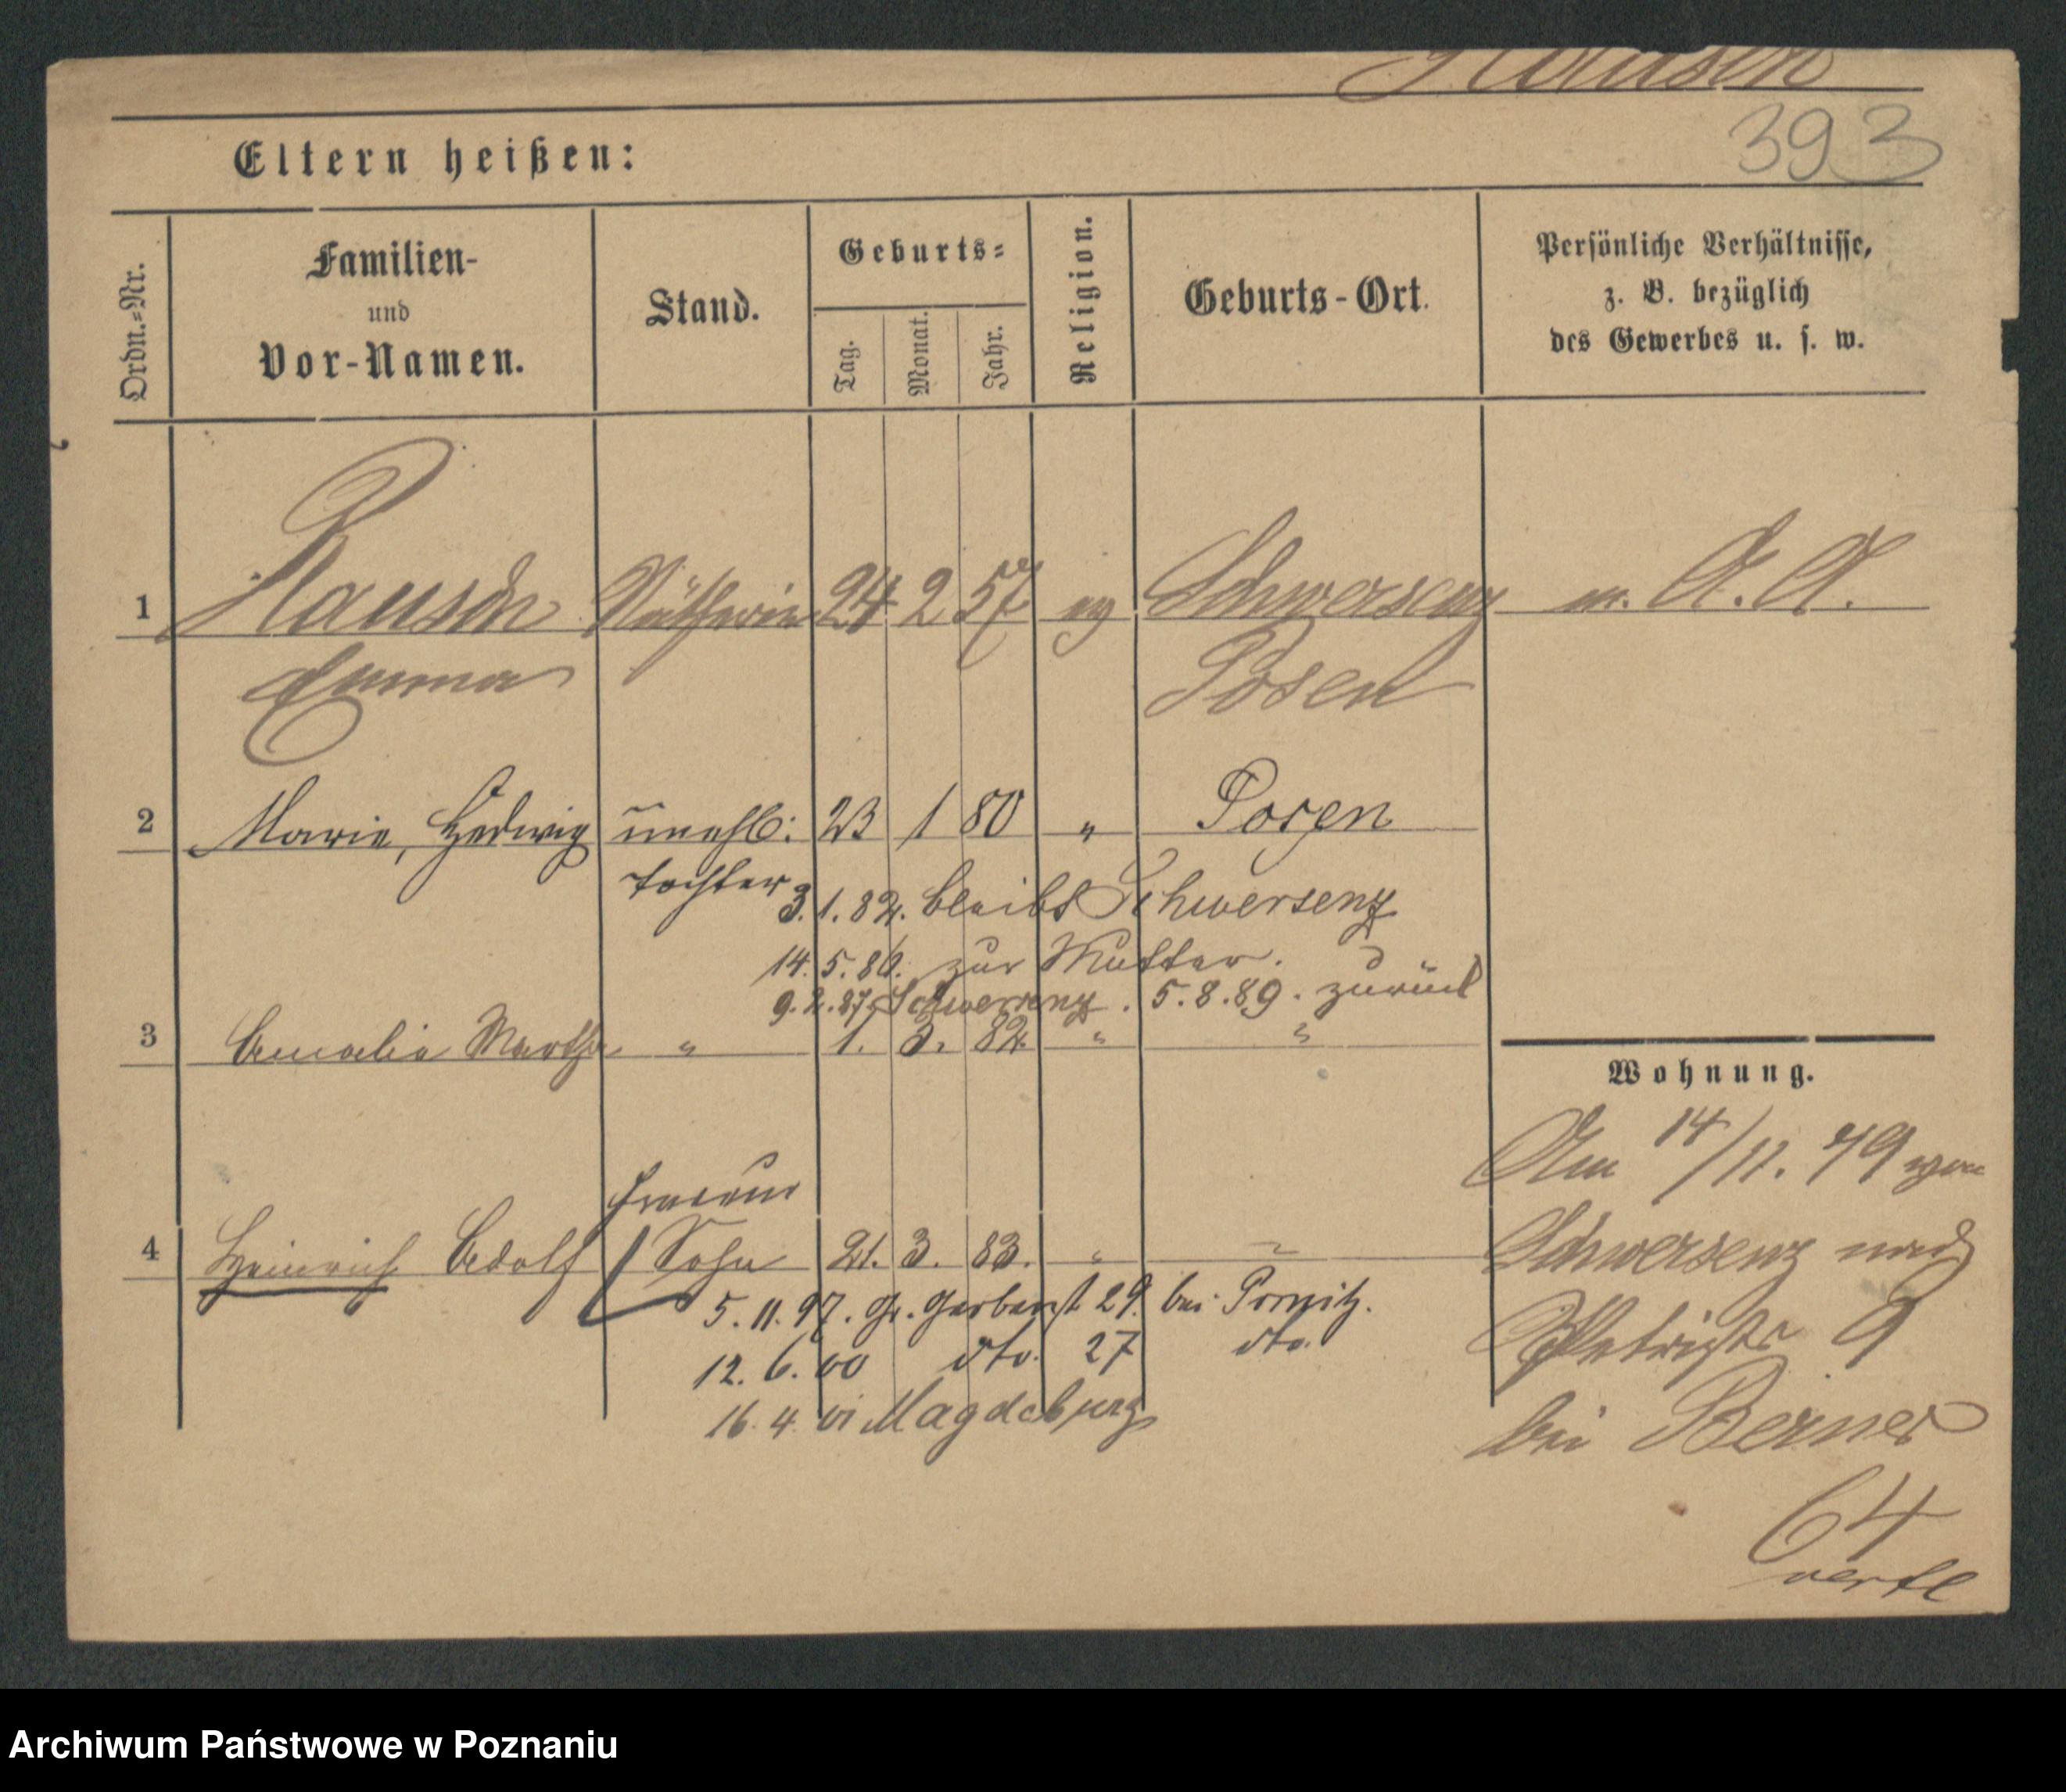 393
Eltern heißen:
Ordn.=Nr.
Familien-
und
Vor-Namen.
Stand.
Geburts=
Tag.
Monat.
Jahr.
Religion.
Geburts-Ort.
Persönliche Verhältnisse,
z. B. bezüglich
des Gewerbes u. s. w.
1 Näthrin 24 2 57 ev Schwersenz A. A.
Emma Posen
2 Marie, Hedwig unehl: 23 1 80 " Posen
Tochter
3.1.82. bleibt Schwersenz
14.5.86. zur Mutter.
9.2.87. Schwersenz. 5.8.89. zurück
3 Amalie Martha " 1. 3. 82 " "
Wohnung.
Am 14/11. 79 von
4 Heinrich Adolf Sohn 21. 3. 83. " "
Schwersenz nach
5.11.97. Gr. Gerberst 29. bei
Petristr 9
12.6.00 dto. 27 dto.
16.4.01 Magdeburg
bei Berner
64
vertl
Archiwum Państwowe w Poznaniu